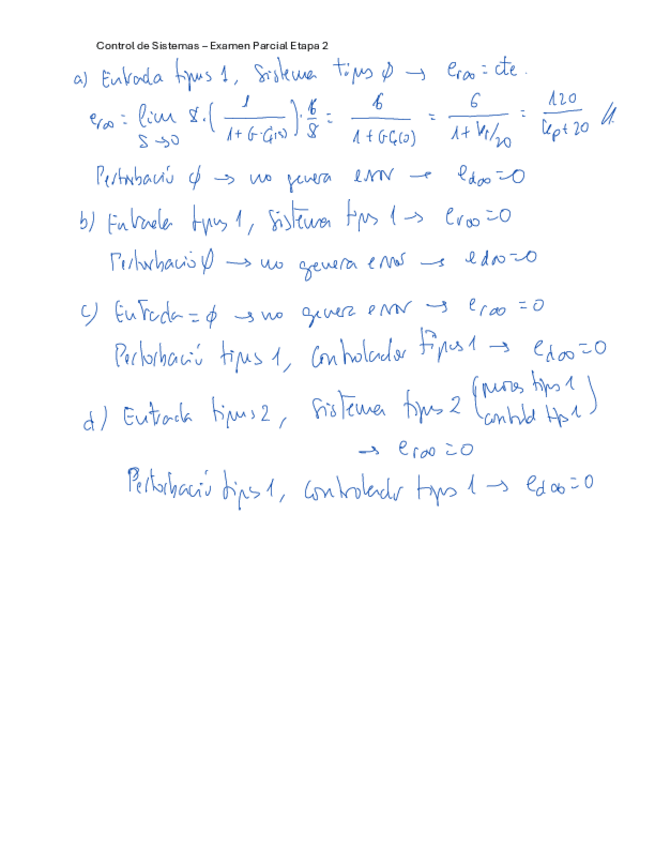 Control de Sistemas – Examen Parcial Etapa 2
a) Entrada tipus 1, Sistema tipus ø → er∞ = cte.
er∞ = lim s→0 s·(1/(1+G·Gc(s)))·6/s = 6/(1+GGc(0)) = 6/(1+Kp/20) = 120/(Kp+20) //
Pertorbació ø → no genera error → ed∞=0
b) Entrada tipus 1, Sistema tipus 1 → er∞=0
Pertorbació ø → no genera error → ed∞=0
c) Entrada = ø → no genera error → er∞ = 0
Pertorbació tipus 1, Controlador tipus 1 → ed∞=0
d) Entrada tipus 2, Sistema tipus 2 (procés tipus 1
control tip 1)
→ er∞=0
Pertorbació tipus 1, Controlador tipus 1 → ed∞=0